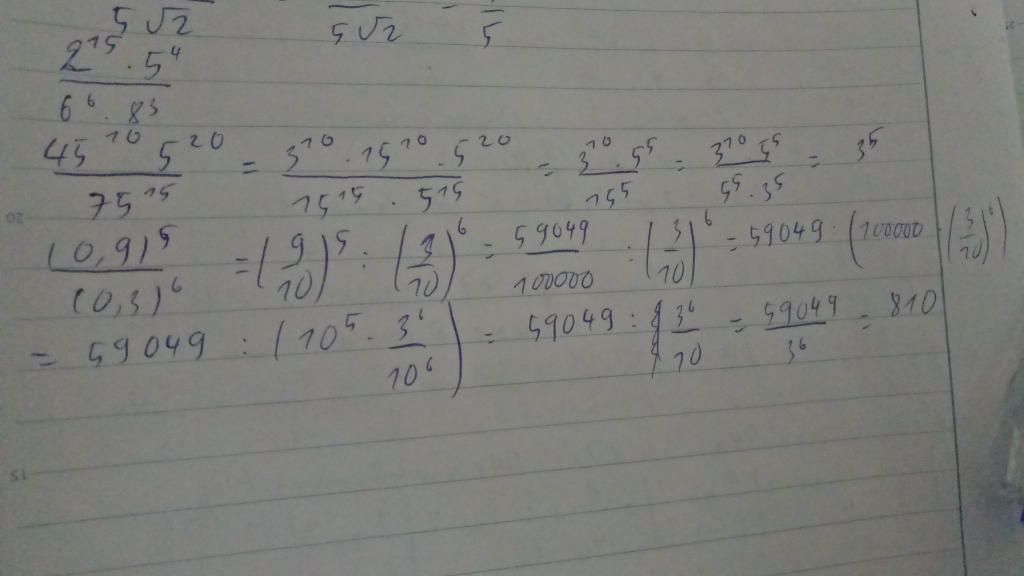 5√2 5√2 = 5
2^15 · 5^4 / 6^6 · 8^3
45^10 5^20 / 75^15 = 3^10 · 15^10 · 5^20 / 15^15 · 5^15 = 3^10 · 5^5 / 15^5 = 3^10 5^5 / 5^5 · 3^5 = 3^5
20
(0,9)^5 / (0,3)^6 = (9/10)^5 : (3/10)^6 = 59049/100000 : (3/10)^6 = 59049 : (100000 · (3/10)^6)
= 59049 : (10^5 · 3^6/10^6) = 59049 : 3^6/10 = 59049/3^6 = 810
15